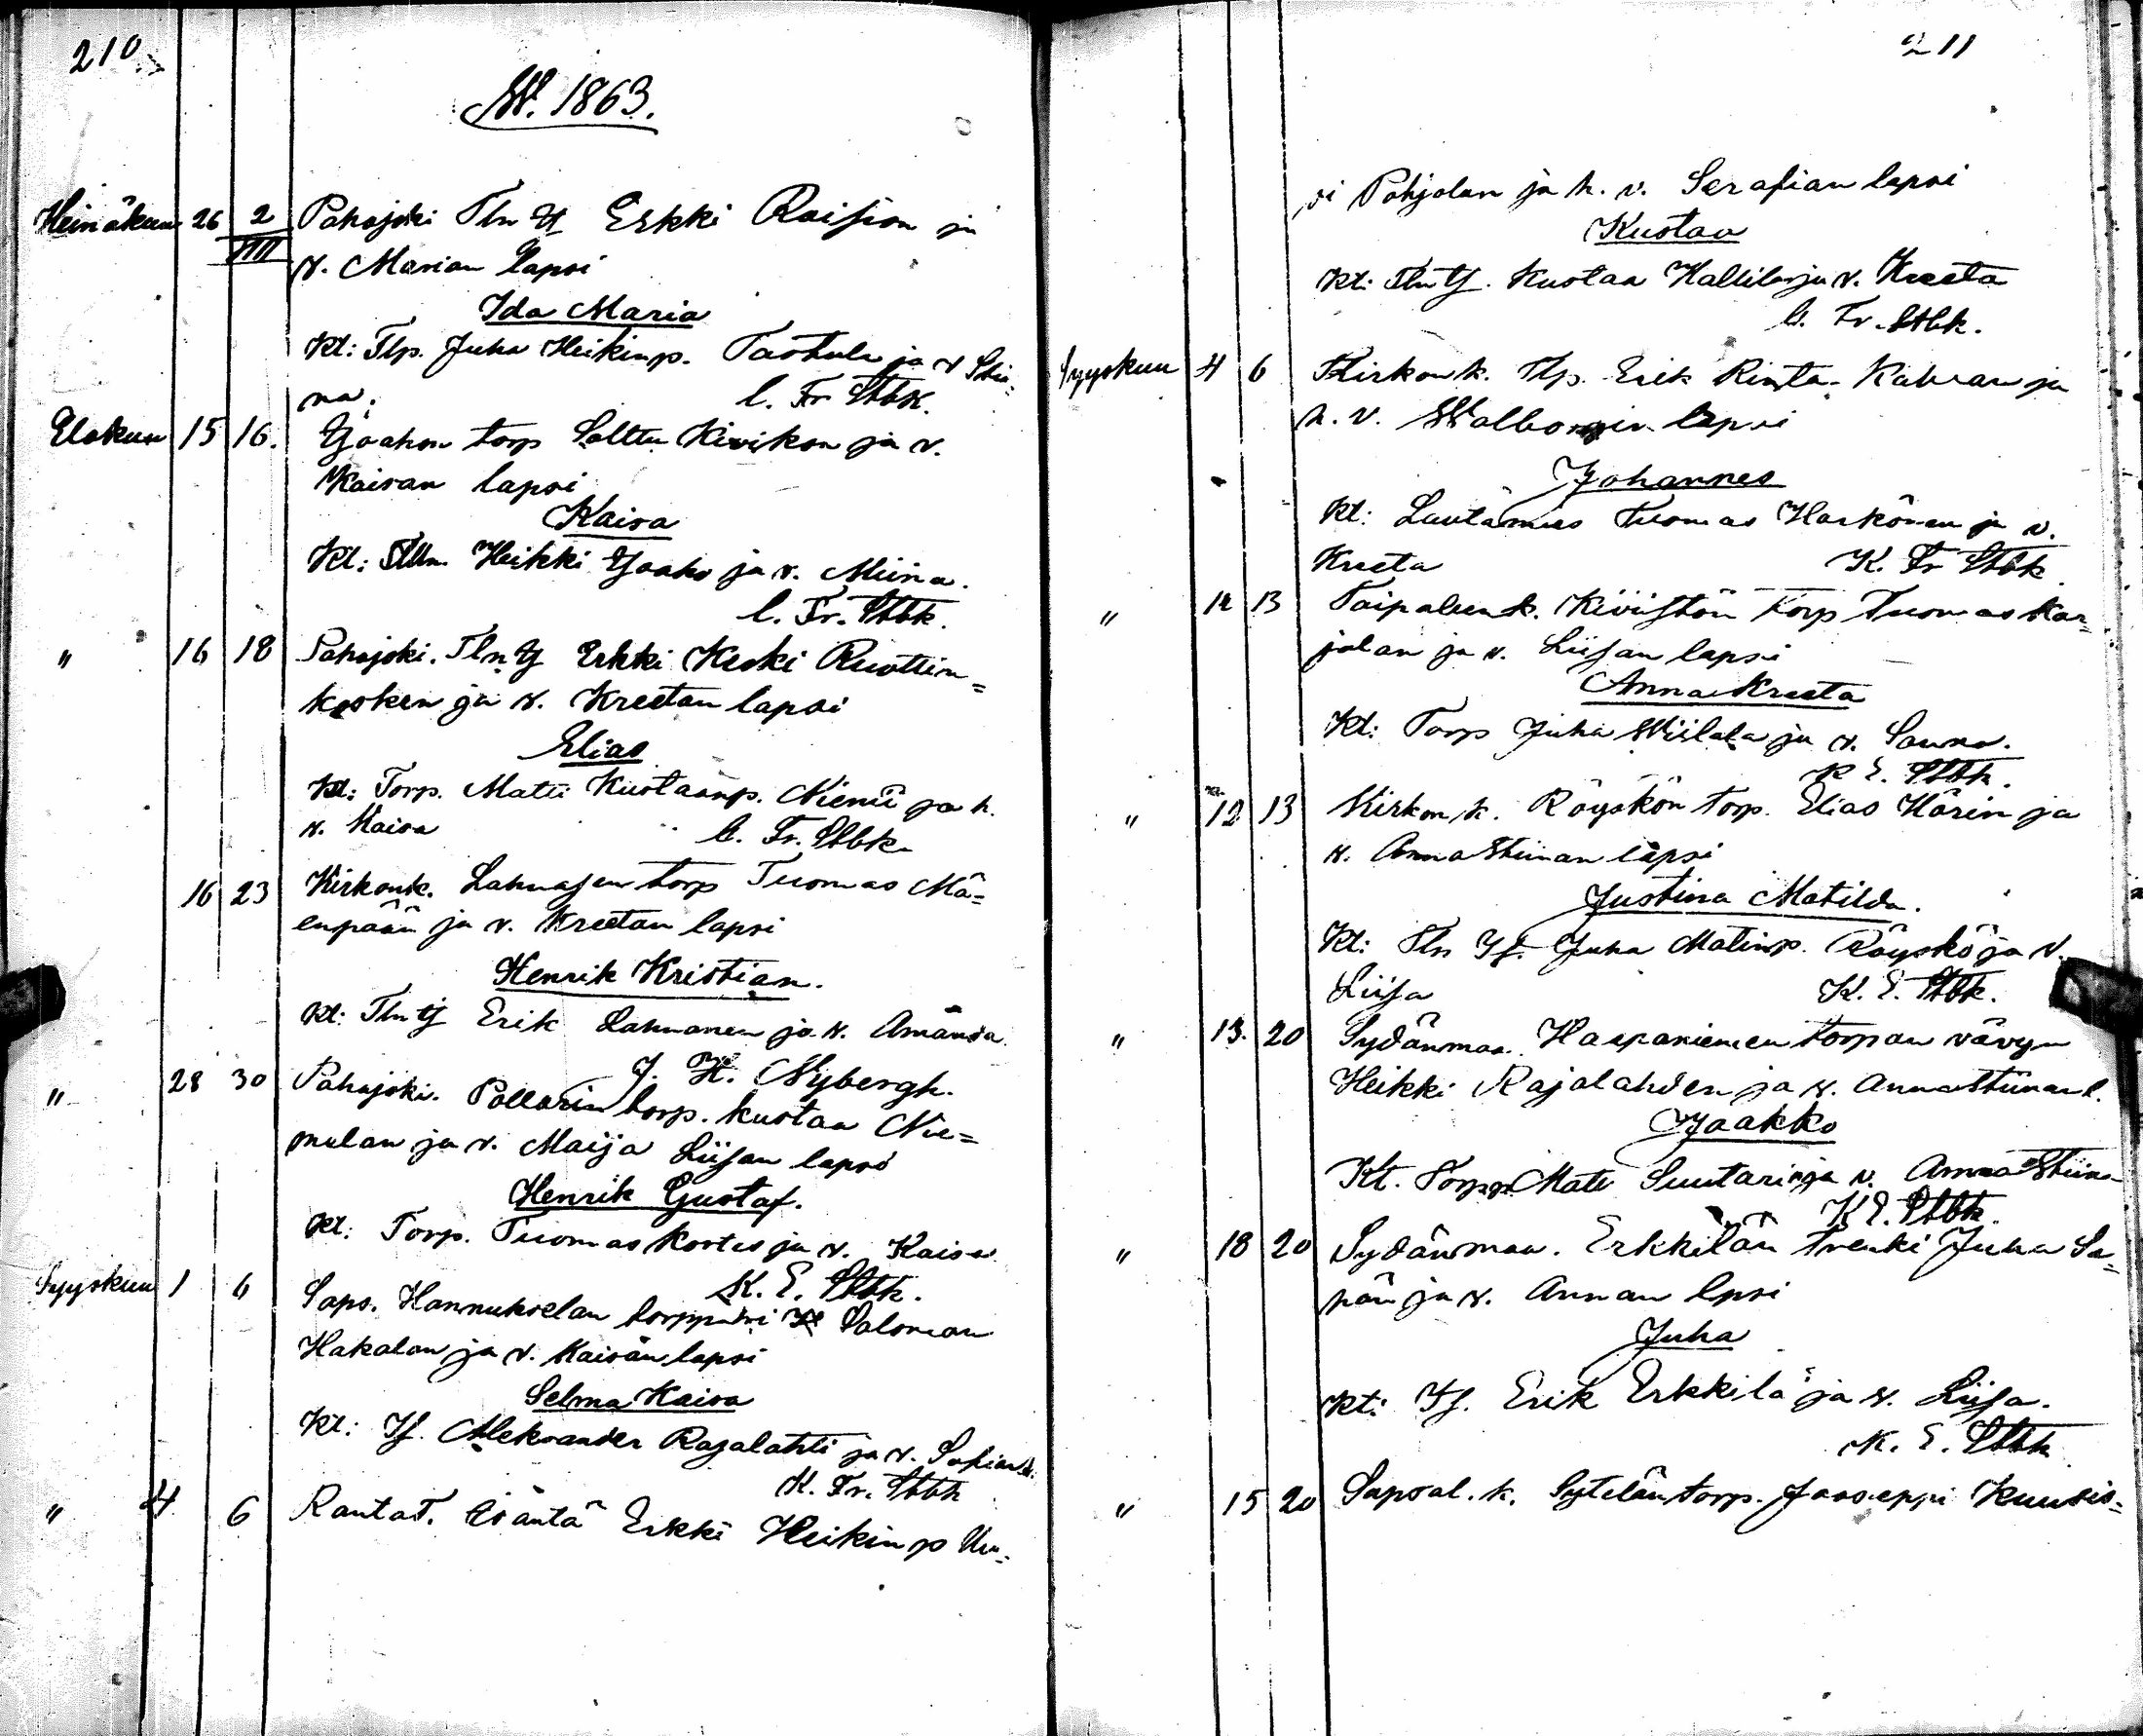 210
W. 1863.
Heinäkuu 26 2/VIII Pahajoki Tln Ij Erkki Raision ja
v. Marian lapsi
Ida Maria
Kt: Tlp. Juha Heikinp. Taohula ja v Stii-
na. C. Fr Stbk.
Elokuu 15 16. Yoahon torp Solttu Kivikon ja v.
Kaisan lapsi
Kaisa
Kt: Tlln. Heikki Yoaho ja v. Miina.
C. Fr. Stbk.
" 16 18 Pahajoki. Tln Ij Erkki Keski Ruottin=
kosken ja v. Kreetan lapsi
Elias
Kt: Torp. Matti Kustaanp. Niemi ja h.
v. Kaisa C. Fr. Stbk.
16 23 Kirkonk. Lahnasen torp Tuomas Mä=
enpään ja v. Kreetan lapsi
Henrik Kristian.
Kt: Tln Ij Erik Lahnanen ja v. Amanda.
J. H. Nybergh.
" 28 30 Pahajoki. Pollarin torp. Kustaa Nie=
melan ja v. Maija Liisan lapsi
Henrik Gustaf.
Kt: Torp. Tuomas Kortes ja v. Kaisa.
K. E. Stbk.
Syyskuu 1 6 Saps. Hannukselan torppari Salomon
Hakalan ja v. Kaisan lapsi
Selma Kaisa
Kt: If. Aleksander Rajalahti ja v. Sofia
K. Fr. Stbk
" 4 6 Rantat. Isäntä Erkki Heikinp Uu=
211
si Pohjolan ja h. v. Serafian lapsi
Kustaa
Kt: Tln Ij. Kustaa Hallila ja v. Kreeta
C. Fr. Stbk.
Syyskuu 4 6 Kirkonk. Tlp. Erik Rinta-Kahran ja
h. v. Walborgin lapsi
Johannes
Kt: Lautamies Tuomas Harkönen ja v.
Kreeta K. Fr Stbk
" 12 13 Taipaleenk. Kiviistön torp Tuomas Kar=
jalan ja v. Liisan lapsi
Anna Kreeta
Kt: Torp Juha Wiilala ja v. Sanna.
K E. Stbk.
" 12 13 Kirkonk. Röyskön torp. Elias Härin ja
v. Anna Stiinan lapsi
Justina Matilda.
Kt: Tln If. Juha Matinp. Röyskö ja v.
Liisa K. E. Stbk.
" 13. 20 Sydänmaa. Haapaniemen torpan vävyn
Heikki Rajalahden ja v. Anna Stiinan l.
Jaakko
Kt. Torpp Mati Suutari ja v. Anna Stiina
K E. Stbk.
" 18 20 Sydänmaa. Erkkilän trenki Juha Sa=
nän ja v. Annan lpsi
Juha
Kt: If. Erik Erkkilä ja v. Liisa.
K. E. Stbk
" 15 20 Sapsal. k. Sytelän torp. Jooseppi Kuusis=